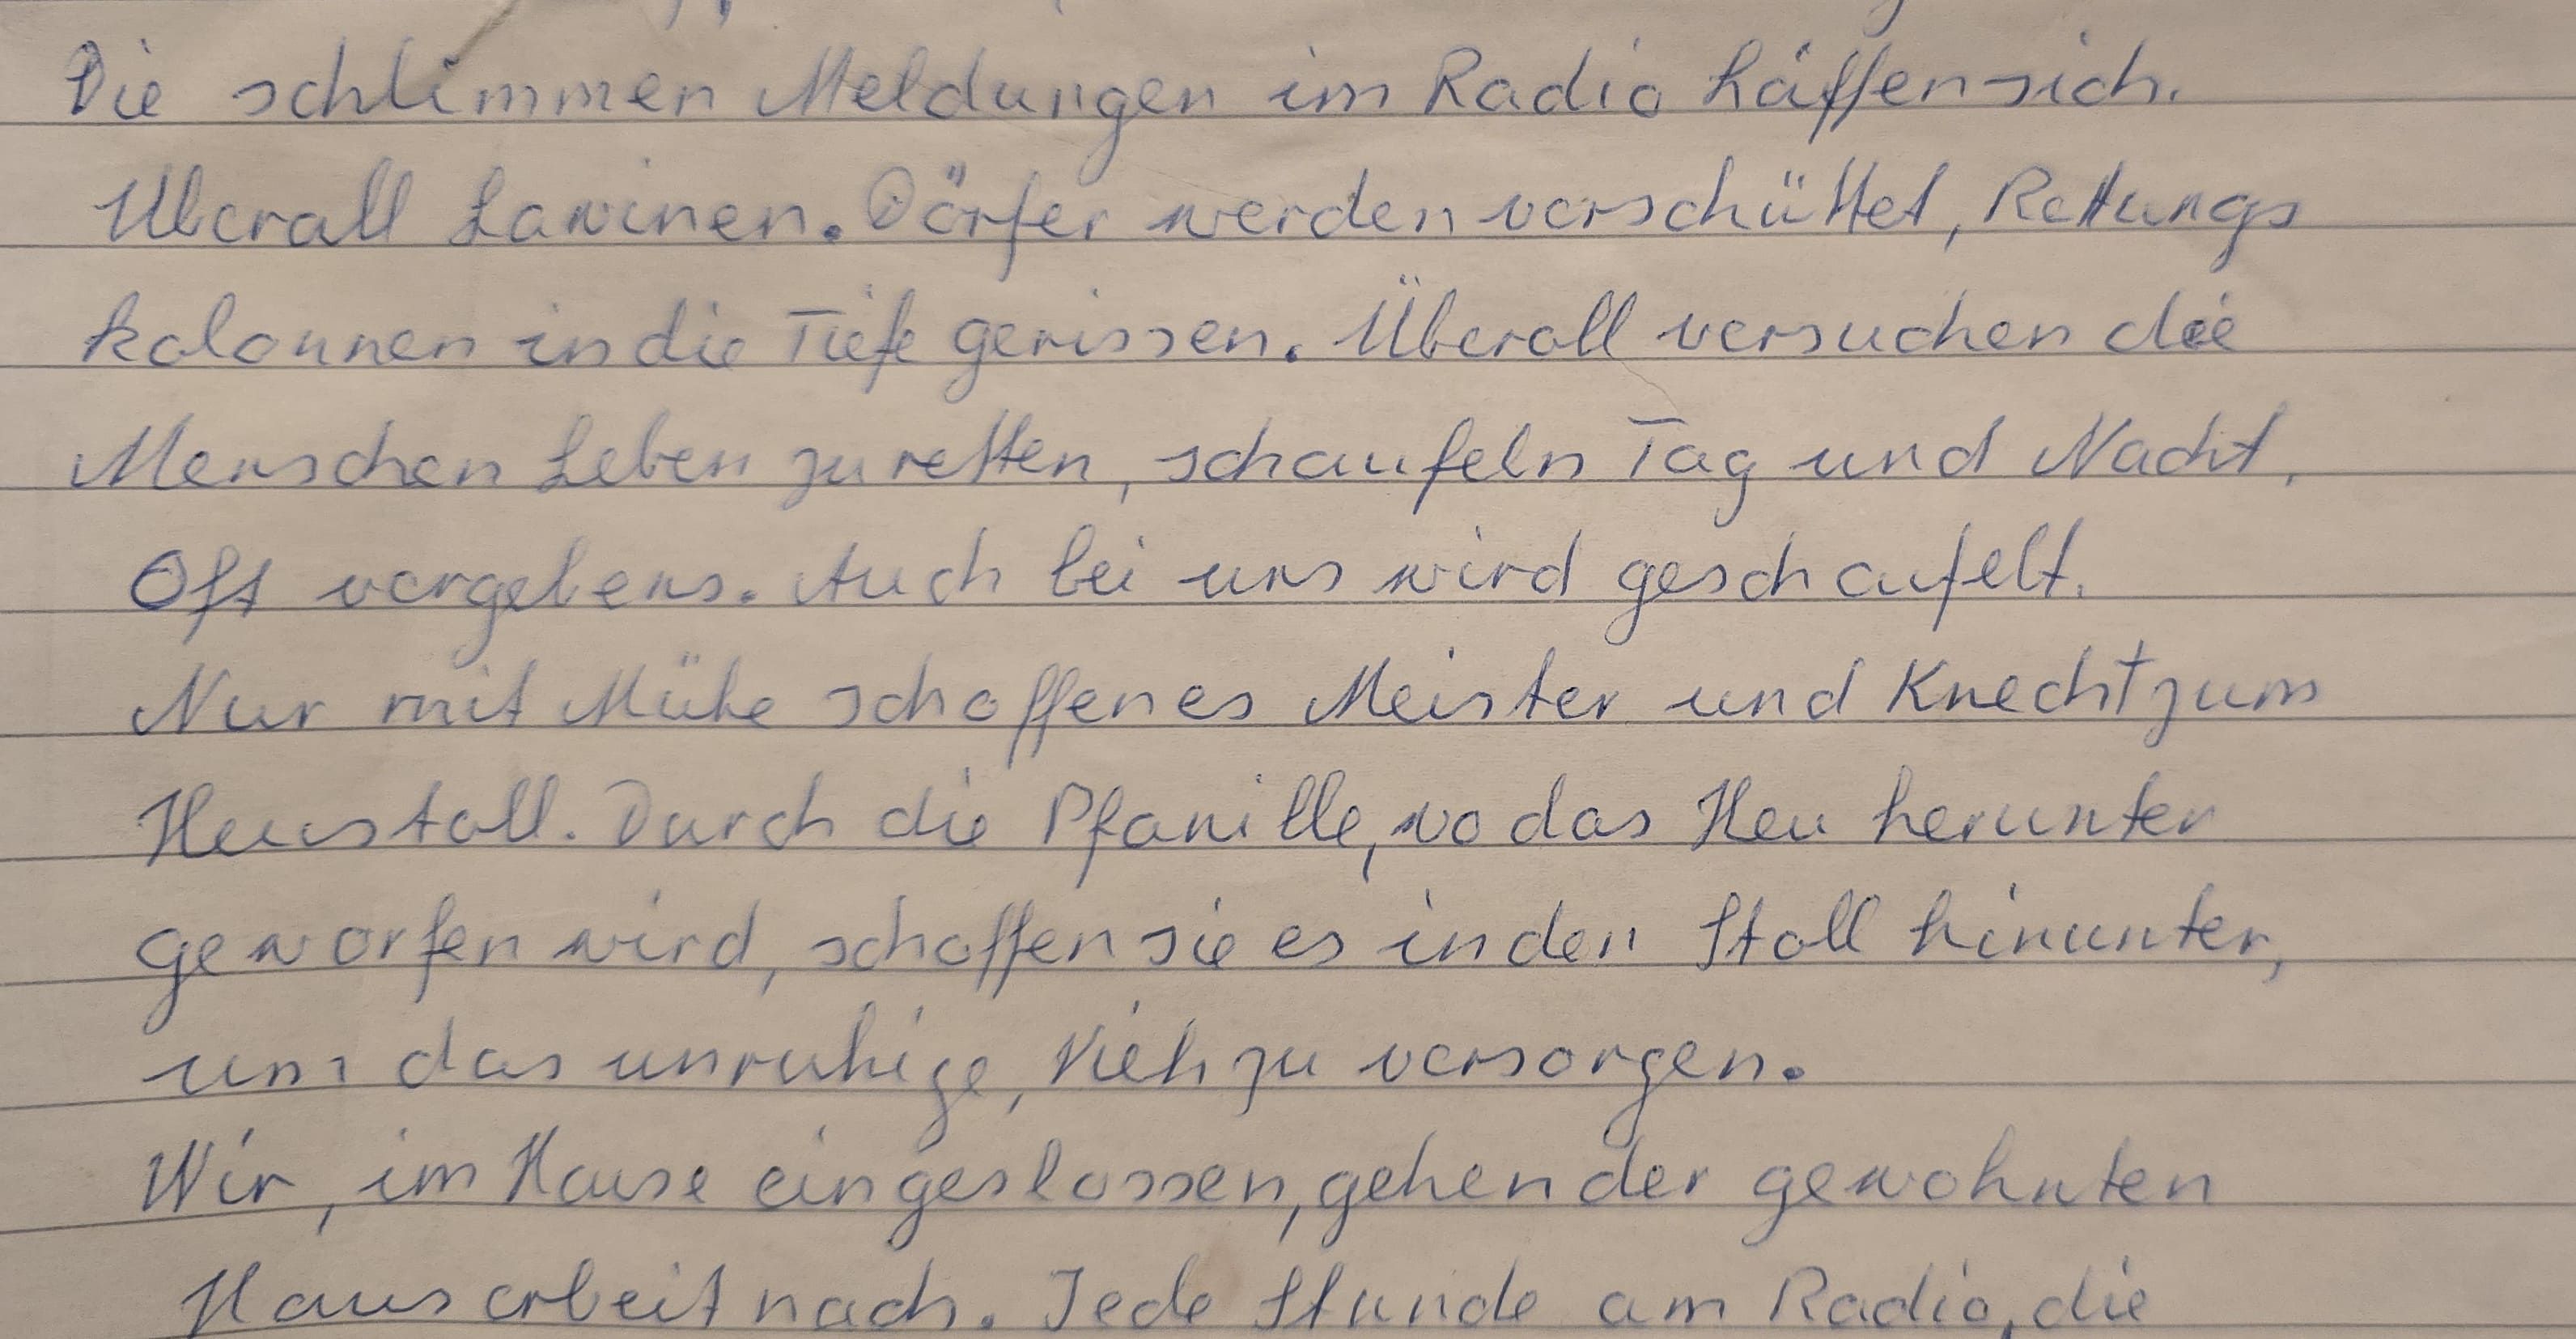 Die schlimmen Meldungen im Radio häffen sich.
Uberall Lawinen. Dörfer werden verschüttet, Rettungs
kolonnen in die Tiefe gerissen. Überall versuchen die
Menschen Leben zu retten, schaufeln Tag und Nacht,
Oft vergebens. Auch bei uns wird geschaufelt.
Nur mit Mühe schaffen es Meister und Knecht zum
Heustall. Durch die Pfanille, wo das Heu herunter
geworfen wird, schaffen sie es in den Stall hinunter,
um das unruhige, Vieh zu versorgen.
Wir, im Hause eingeslossen, gehen der gewohnten
Hausarbeit nach. Jede Stunde am Radio, die